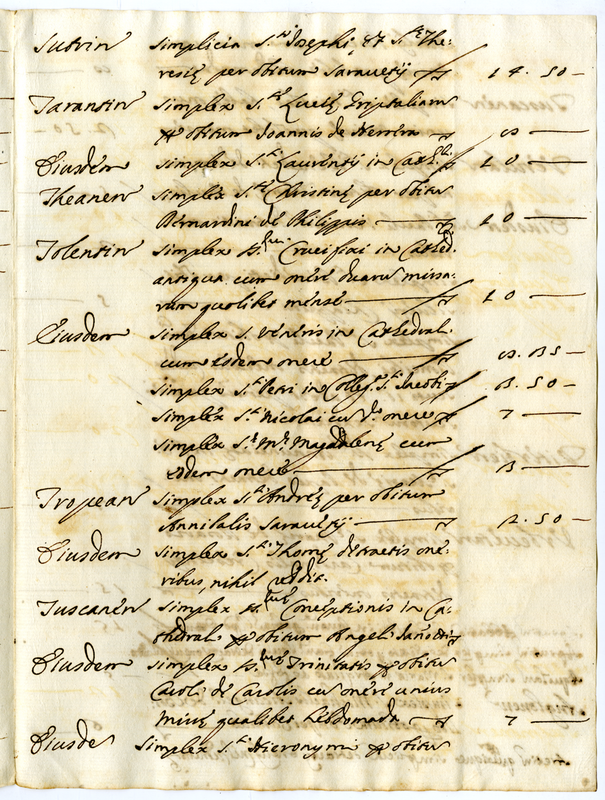 Sutrin Simplicia S.ti Josephi, et S.te The:
resię per obitum Sarauetij 14. 50 -
Tarantin Simplex S.te Lucię Griptaliarum
obitum Joannis de Herrera
Eiusdem Simplex S.ti Laurentij in Cath.li 10 -
Theanen Simplex S.te Christinę per obitum
Bernardini de Philippis 10 -
Tolentin Simplex SS.mi Crucifixi in Cathed.
antiqua cum onere duaru missa:
rum quolibet mense 10 -
Eiusdem Simplex S. Veneris in Cathedral.
cum eodem onere
Simplex S.ti Petri in Colleg. S.ti Jacobi 50 -
Simplex S.ti Nicolai cu d.o onere 7 -
Simplex S. M. Magdalenę cum
eodem onere
Tropean Simplex S.ti Andreę per obitum
Annibalis Sarauetij 12. 50 -
Eiusdem Simplex S.ti Thomę detractis one:
ribus, nihil reddit.
Tuscanen Simplex Conceptionis in Ca:
thedral obitum Angeli
Eiusdem Simplex Trinitatis obitu
Caroli de Carolis cu onere unius
Missę qualibet hebdomada 7 -
Eiusde Simplex S.ti Hieronymi obitu